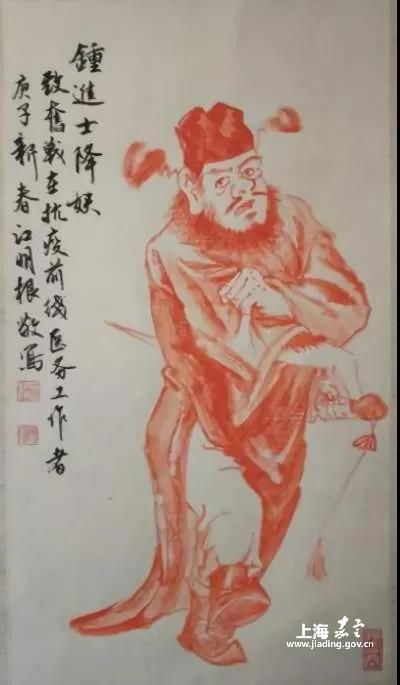 鍾進士降妖
致奮战在抗疫前线医务工作者
庚子新春江明根敬写
上海嘉定
www.jiading.gov.cn